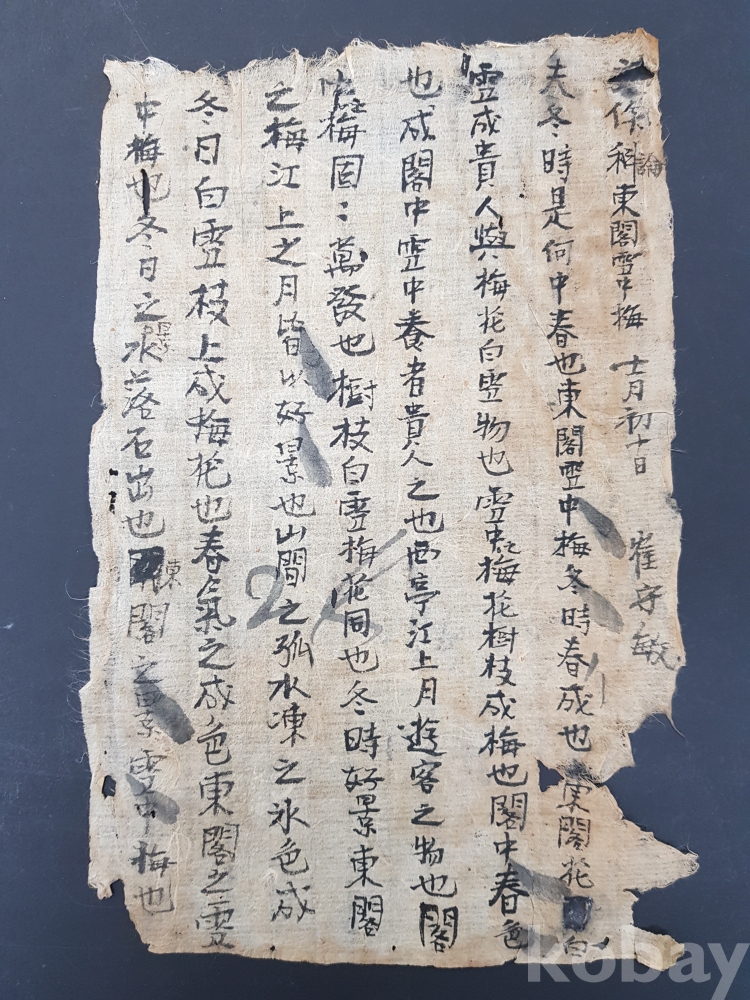 作科東閣雪中梅 十二月初十日 崔守敏
論
夫冬時是何中春也東閣雪中梅冬時春成也 閣花 白
雪成貴人與梅花白雪物也雪中之梅花樹枝成梅也閣中春色
也成閣中雪中養者貴人之也西亭江上月遊客之物也閣
中之梅固〻萬發也樹枝白雪梅花同也冬時好景東閣
之梅江上之月皆以好景也山間之弧水凍之氷色成
冬日白雪枝上成梅花也春氣之成色東閣之雪
中梅也冬日之景水落石出也東閣之景雪中梅也
kobay